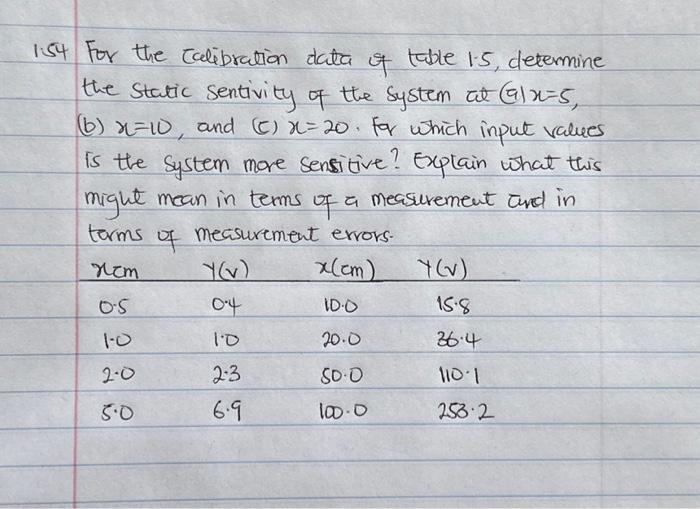 1.54 For the calibration data of table 1.5, determine
the static sentivity of the system at (a) x=5,
(b) x=10, and (c) x=20. For which input values
is the system more sensitive? Explain what this
might mean in terms of a measurement and in
terms of measurement errors.
x cm Y(v) x(cm) Y(v)
0.5 0.4 10.0 15.8
1.0 1.0 20.0 36.4
2.0 2.3 50.0 110.1
5.0 6.9 100.0 253.2